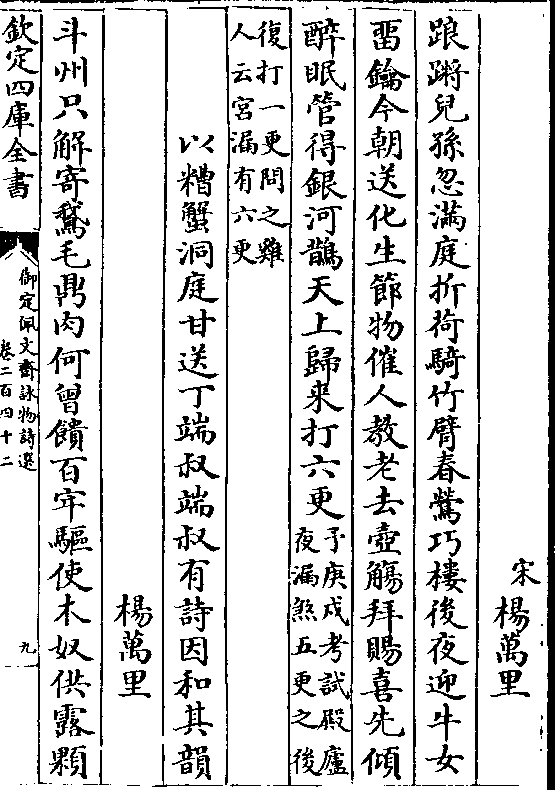 宋楊萬里
踉蹡兒孫忽滿庭折荷騎竹臂春鶯巧樓後夜迎牛女
畱鑰今朝送化生節物催人教老去壺觴拜賜喜先傾
醉眠管得銀河鵲天上歸来打六更
予庚戌考試殿廬
夜漏煞五更之後
復打一更問之雞
人云宮漏有六更
以糟蟹洞庭甘送丁端叔端叔有詩因和其韻
楊萬里
斗州只解寄鵞毛鼎肉何曾饋百牢驅使木奴供露顆
欽定四庫全書
御定佩文齋詠物詩選
卷二百四十二
九